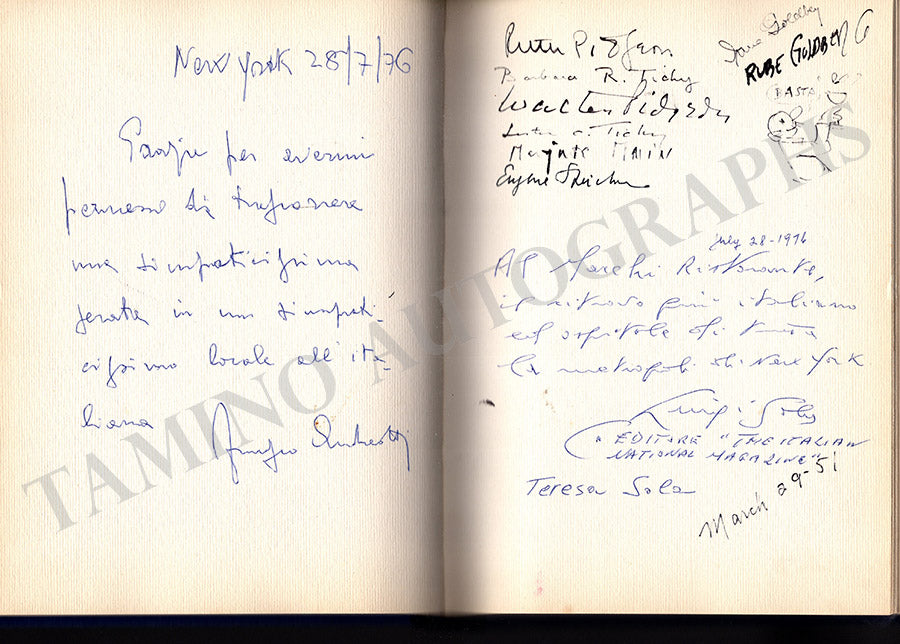 New York 28/7/76
Grazie per avermi
permesso di trascorrere
una simpaticissima
serata in un simpati-
cissimo locale all'ita-
liana
Ruth Pidgeon
Barbara R. Tichy
Walter Pidgeon
Tichy
Marjorie Main
Eugene
Goldberg
RUBE GOLDBERG
(BASTA)
July 28-1976
Al Ristorante,
il ritrovo più italiano
ed ospitale di tutta
la metropoli di New York
Luigi Sola
EDITORE "THE ITALIAN
NATIONAL MAGAZINE"
Teresa Sola
March 29-51
TAMINO AUTOGRAPHS